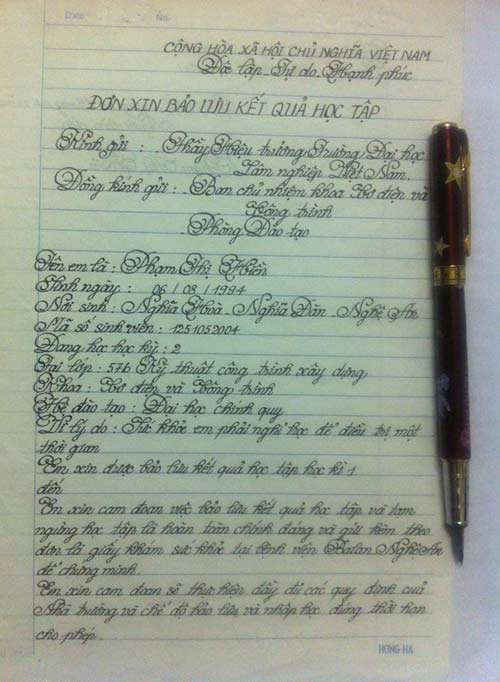 Date No.
CỘNG HÒA XÃ HỘI CHỦ NGHĨA VIỆT NAM
Độc lập Tự do Hạnh phúc
ĐƠN XIN BẢO LƯU KẾT QUẢ HỌC TẬP
Kính gửi : Thầy Hiệu trưởng Trường Đại học
Lâm nghiệp Việt Nam.
Đồng kính gửi : Ban chủ nhiệm khoa Cơ điện và
Công trình
Phòng Đào tạo
Tên em là : Phạm Thị Hiền
Sinh ngày : 06 / 08 / 1994
Nơi sinh : Nghĩa Hoà _ Nghĩa Đàn _ Nghệ An
Mã số sinh viên : 1251052004
Đang học học kỳ : 2
Tại lớp : 57G Kỹ thuật công trình xây dựng
Khoa : Cơ điện và Công trình
Hệ đào tạo : Đại học chính quy
Vì lý do : Sức khỏe em phải nghỉ học để điều trị một
thời gian
Em xin được bảo lưu kết quả học tập học kì 1
đến
Em xin cam đoan việc bảo lưu kết quả học tập và tạm
ngừng học tập là hoàn toàn chính đáng và gửi kèm theo
đơn là giấy khám sức khỏe tại bệnh viện Balan Nghệ An
để chứng minh
Em xin cam đoan sẽ thực hiện đầy đủ các quy định của
Nhà trường và chế độ bảo lưu và nhập học đúng thời hạn
cho phép.
HONG HA